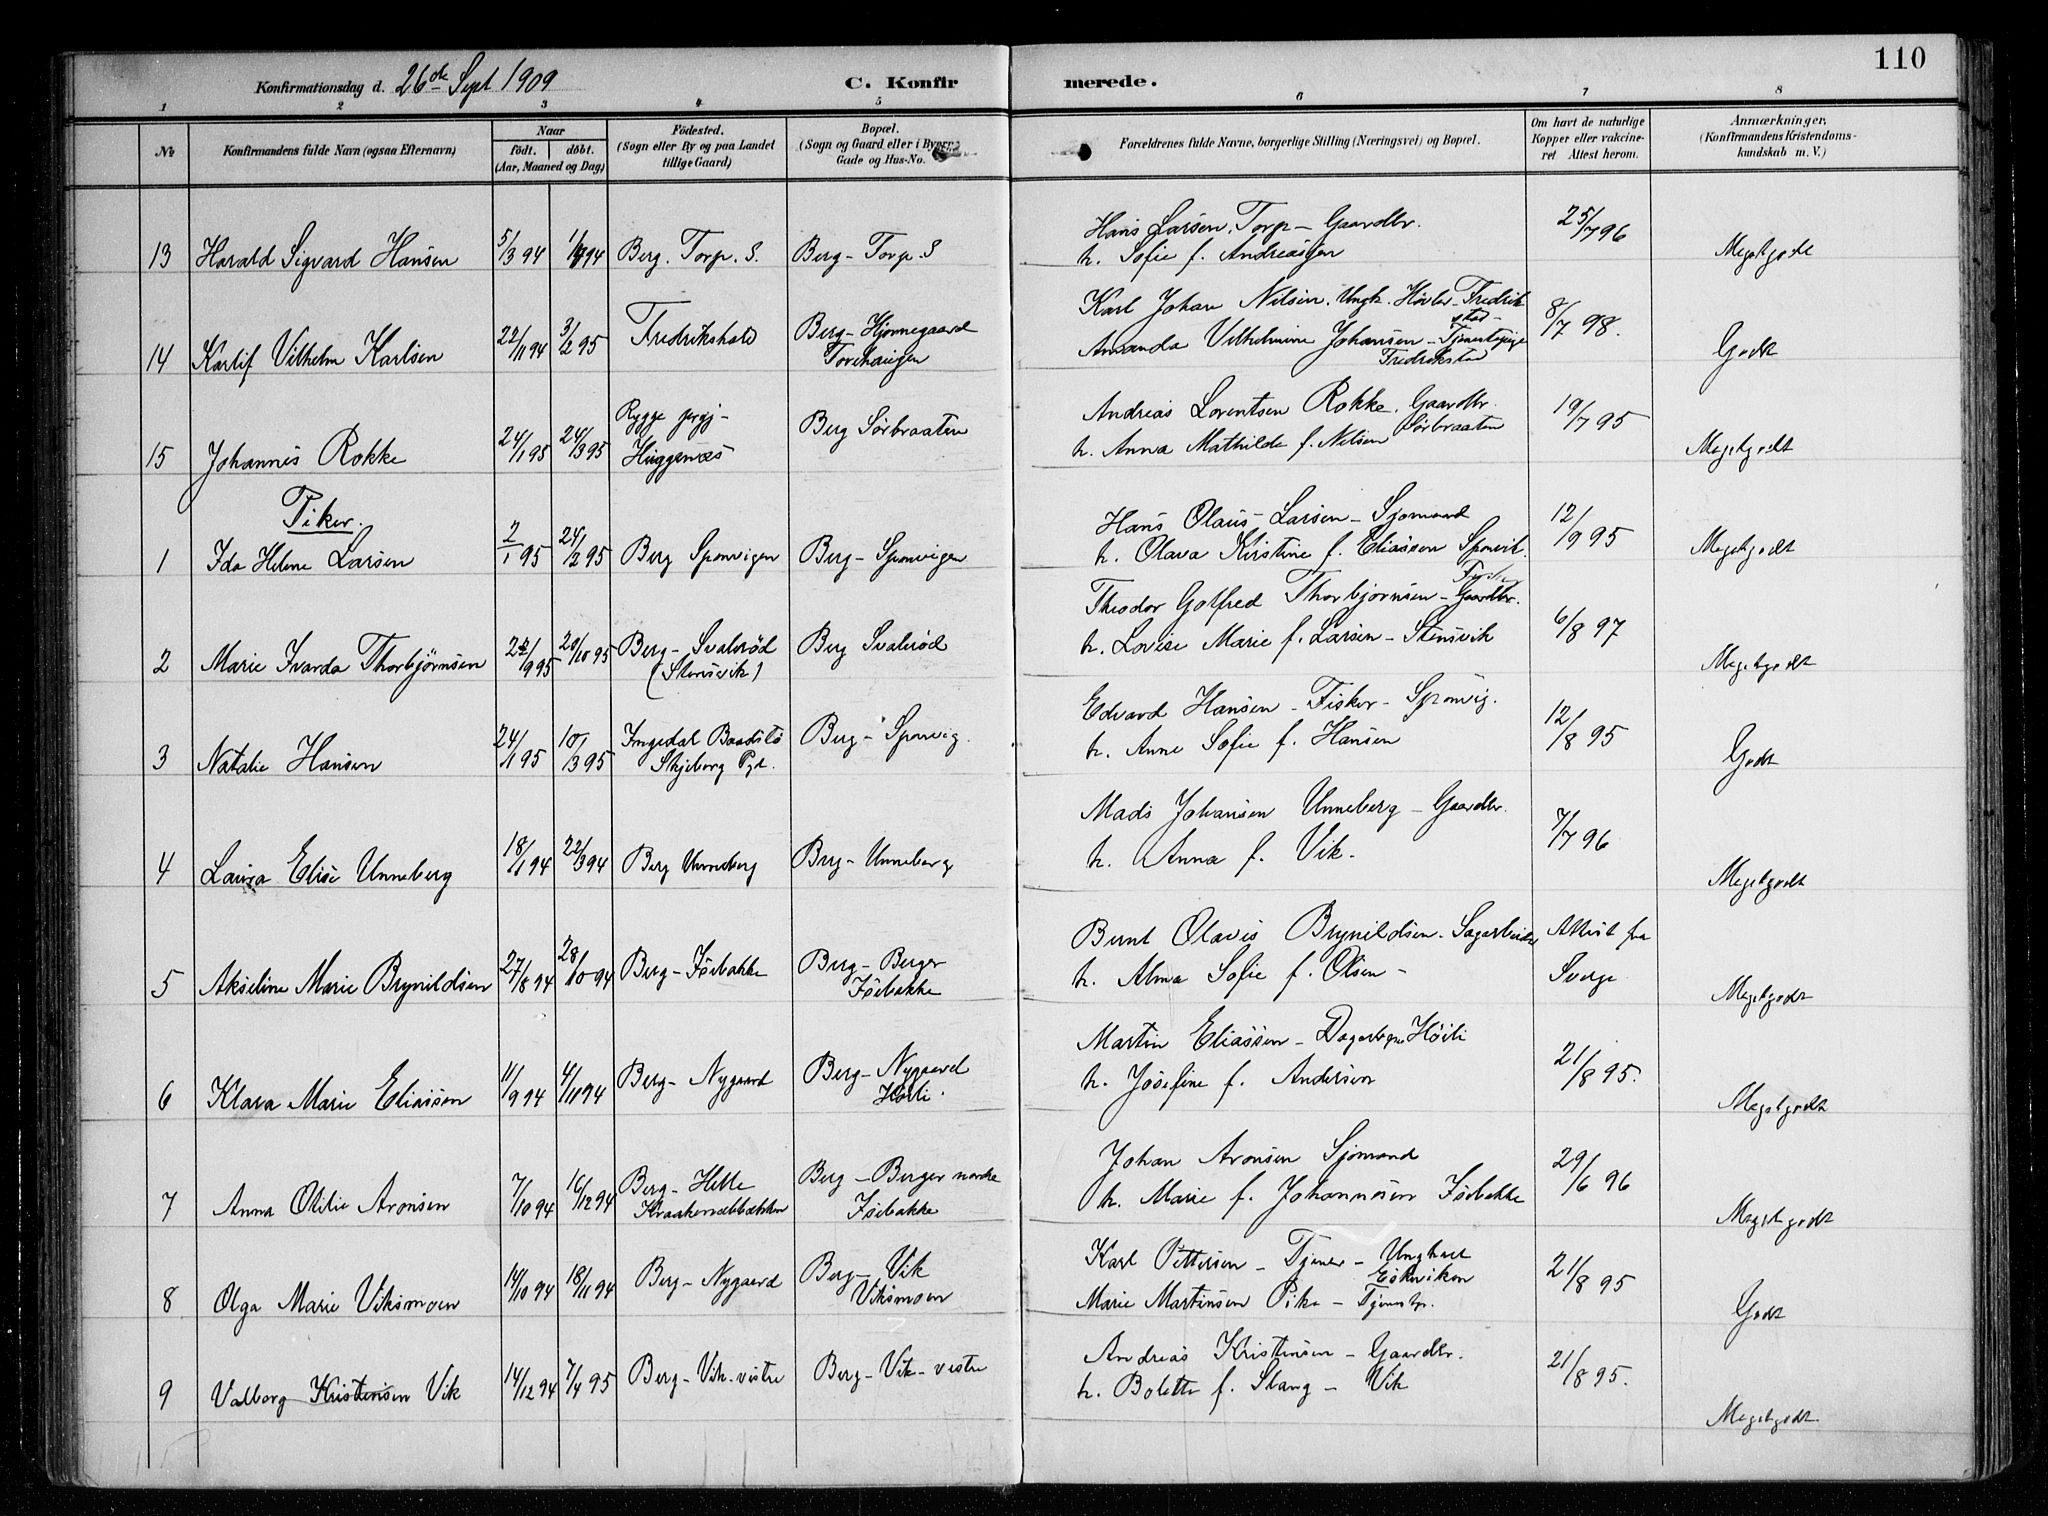 110
Konfirmationsdag d. 26de Sept 1909 C. Konfirmerede.
1 2 3 4 5 6 7 8
No Konfirmandens fulde Navn (ogsaa Efternavn) Naar født. døbt. (Aar, Maaned og Dag) Fødested. (Sogn eller By og paa Landet tillige Gaard) Bopæl. (Sogn og Gaard eller i Byerne Gade og Hus-No. Forældrenes fulde Navne, borgerlige Stilling (Næringsvei) og Bopæl. Om havt de naturlige Kopper eller vakcineret Attest herom. Anmærkninger, (Konfirmandens Kristendomskundskab m. V.)
Hans Larsen Torp - Gaardbr. 25/7 96
13 Harald Sigvard Hansen 5/3 94 94 Berg. Torp. S. Berg - Torp. S h. Sofie f. Andreassen Megetgodt
Karl Johan Nilsen. Ungk. Fredrikstad - 8/7 98.
14 Karlif Vilhelm Karlsen 22/11 94 3/2 95 Fredrikshald Berg - Hjønnegaard Torehaugen Amanda Vilhelmine Johansen - Tjenestepige Fredrikstad Godt
Andreas Lorentsen Rokke. Gaardbr. 19/7 95
15 Johannes Rokke 24/1 95 24/3 95 Rygge prgj - Huggenæs Berg Sørbraaten h. Anna Mathilde f. Nilsen Sørbraaten Megetgodt
Piker.
Hans Olaus Larsen - Sjømand 12/9 95
1 Ida Helene Larsen 2/1 95 24/2 95 Berg Sponvigen Berg - Sponvigen h. Olava Kristine f. Eliassen Sponvik. Megetgodt
Theodor Golfred Thorbjørnsen - Gaardbr. 6/8 97
2 Marie Ivarda Thorbjørnsen 22/9 95 20/10 95 Berg - Svalerød (Stensvik) Berg Svalerød h. Lovise Marie f. Larsen - Stensvik Megetgodt
Edvard Hansen - Fisker - Sponvig. 12/8 95
3 Natalie Hansen 24/1 95 10/3 95 Ingedal Baadstø Skjeberg Pgd. Berg - Sponvig. h. Anne Sofie f. Hansen Godt
Mads Johansen Unneberg - Gaardbr. 7/7 96
4 Laura Elise Unneberg 18/1 94 22/3 94 Berg Unneberg Berg - Unneberg h. Anna f. Vik. Megetgodt
Bernt Olavis Brynildsen - Sagarbeider Attest fra
5 Akseline Marie Brynildsen 27/8 94 28/10 94 Berg - Isebakke Berg - Berger Isebakke h. Alma Sofie f. Olsen - Sverge Megetgodt
Martin Eliassen - Høili 21/8 95.
6 Klara Marie Eliassen 11/9 94 4/11 94 Berg - Nygaard Berg - Nygaard Høili. h. Josefine f. Andersen Megetgodt
Johan Aronsen Sjømand 29/6 96
7 Anna Otilie Aronsen 7/10 94 16/12 94 Berg - Helle Kraakenebbakken Berg - Berger nordre Isebakke h. Marie f. Johannesen Isebakke Megetgodt
Karl Pettersen - Tjener - Ungkarl Eskeviken 21/8 95
8 Olga Marie Viksmoen 14/10 94 18/11 94 Berg - Nygaard Berg - Vik Viksmoen Marie Martinsen Pike - Tjenestp. Godt
Andreas Kristensen - Gaardbr. 21/8 95.
9 Valborg Kristensen Vik 14/12 94 7/4 95 Berg - Vik - vestre Berg - Vik - vestre h. Bolette f. Stang - Vik Megetgodt